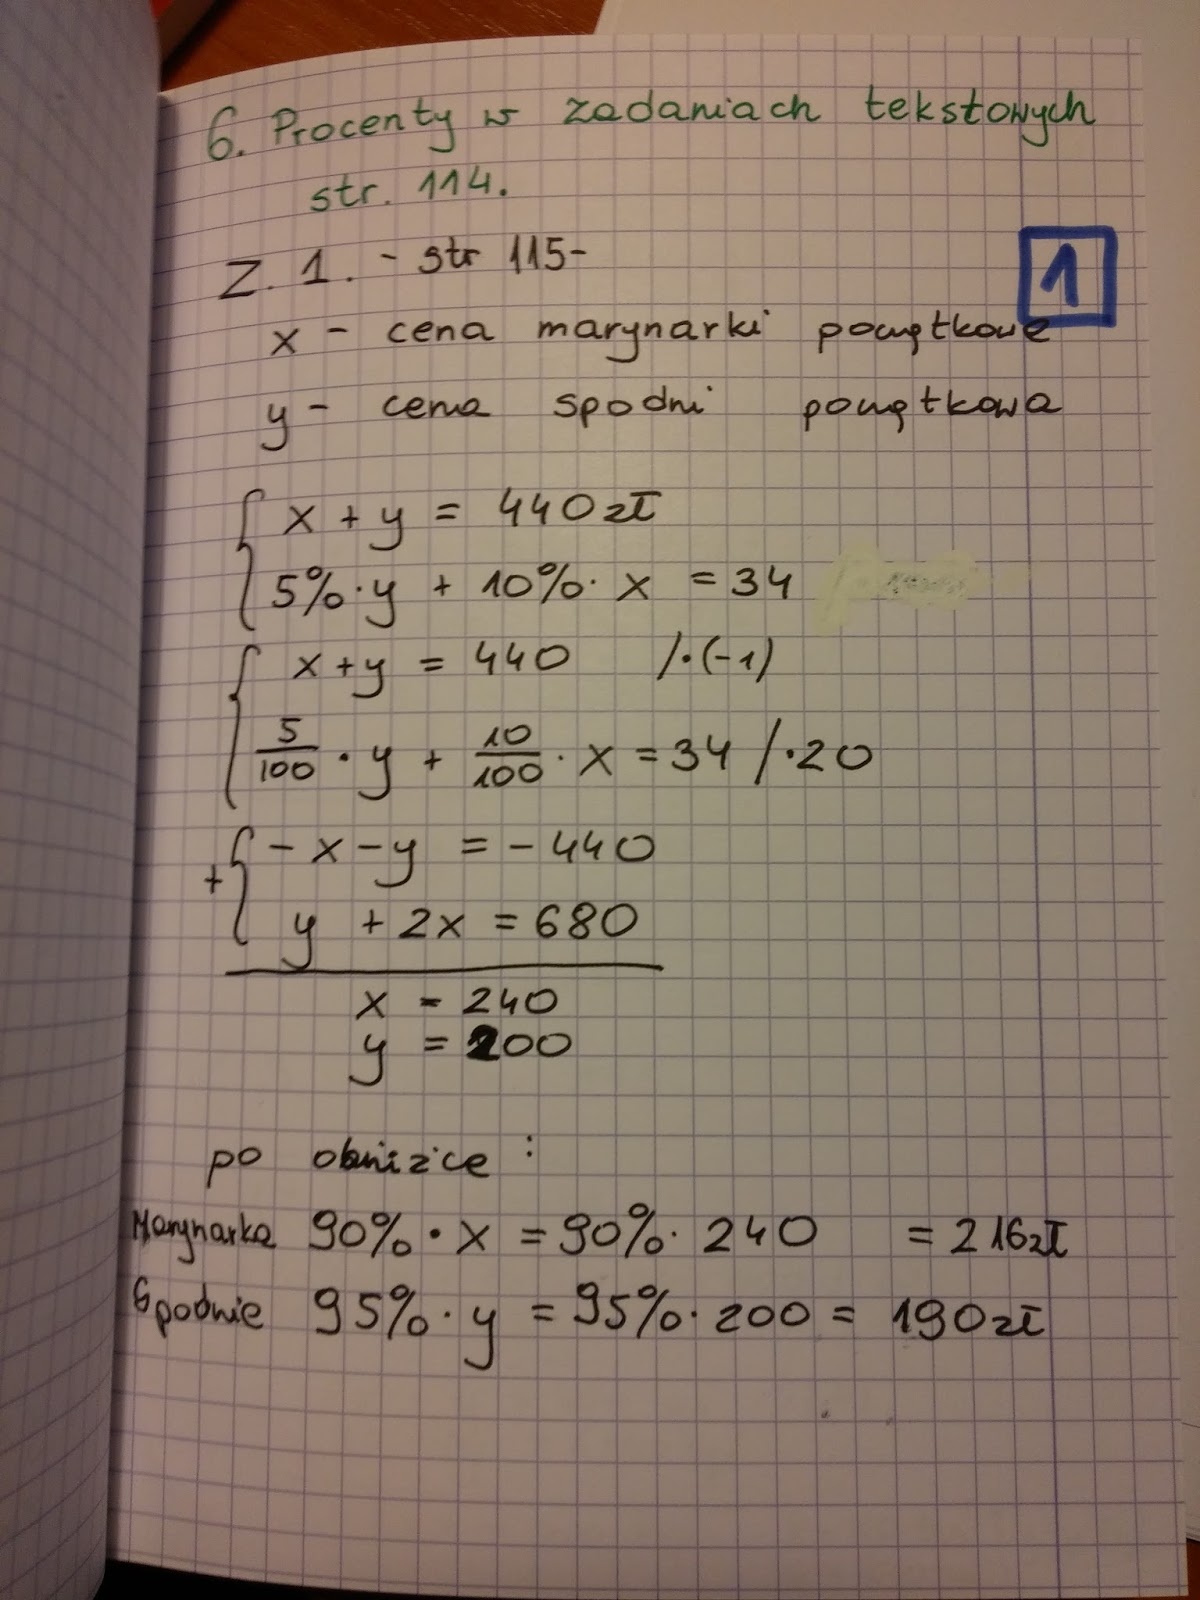 6. Procenty w zadaniach tekstowych
str. 114.
Z. 1. - str 115-
1
x - cena marynarki początkowa
y - cena spodni początkowa
x + y = 440 zł
5% · y + 10% · x = 34
x + y = 440 /·(-1)
5/100 · y + 10/100 · x = 34 /·20
+ -x - y = -440
y + 2x = 680
x = 240
y = 200
po obniżce :
Marynarka 90% · x = 90% · 240 = 216 zł
Spodnie 95% · y = 95% · 200 = 190 zł